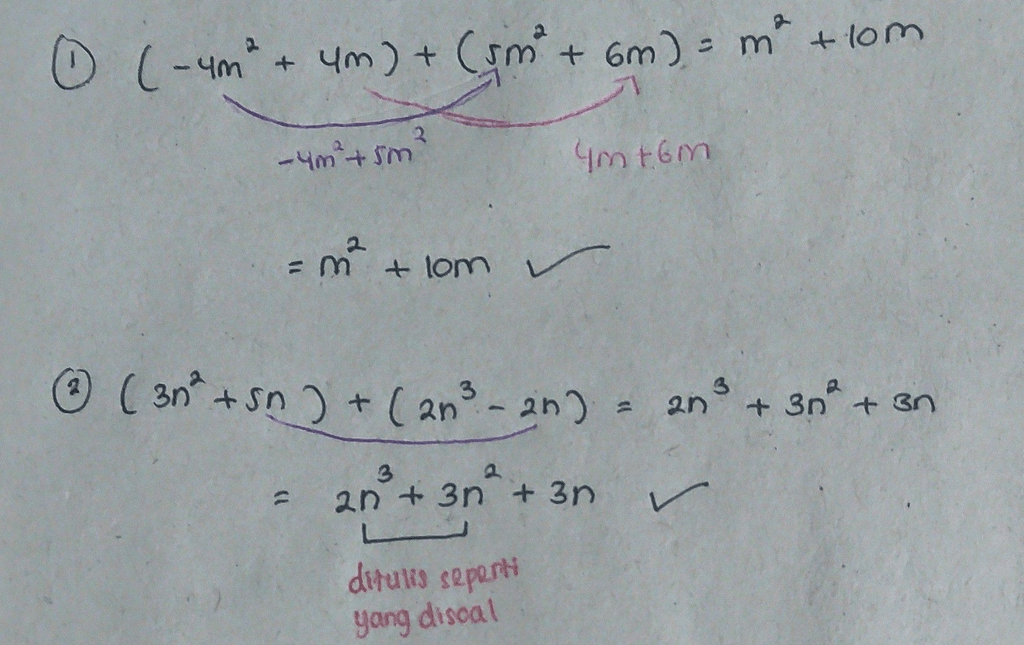 ① (-4m² + 4m) + (5m² + 6m) = m² + 10m
-4m² + 5m² 4m + 6m
= m² + 10m ✓
② (3n² + 5n) + (2n³ - 2n) = 2n³ + 3n² + 3n
= 2n³ + 3n² + 3n ✓
ditulis seperti
yang disoal